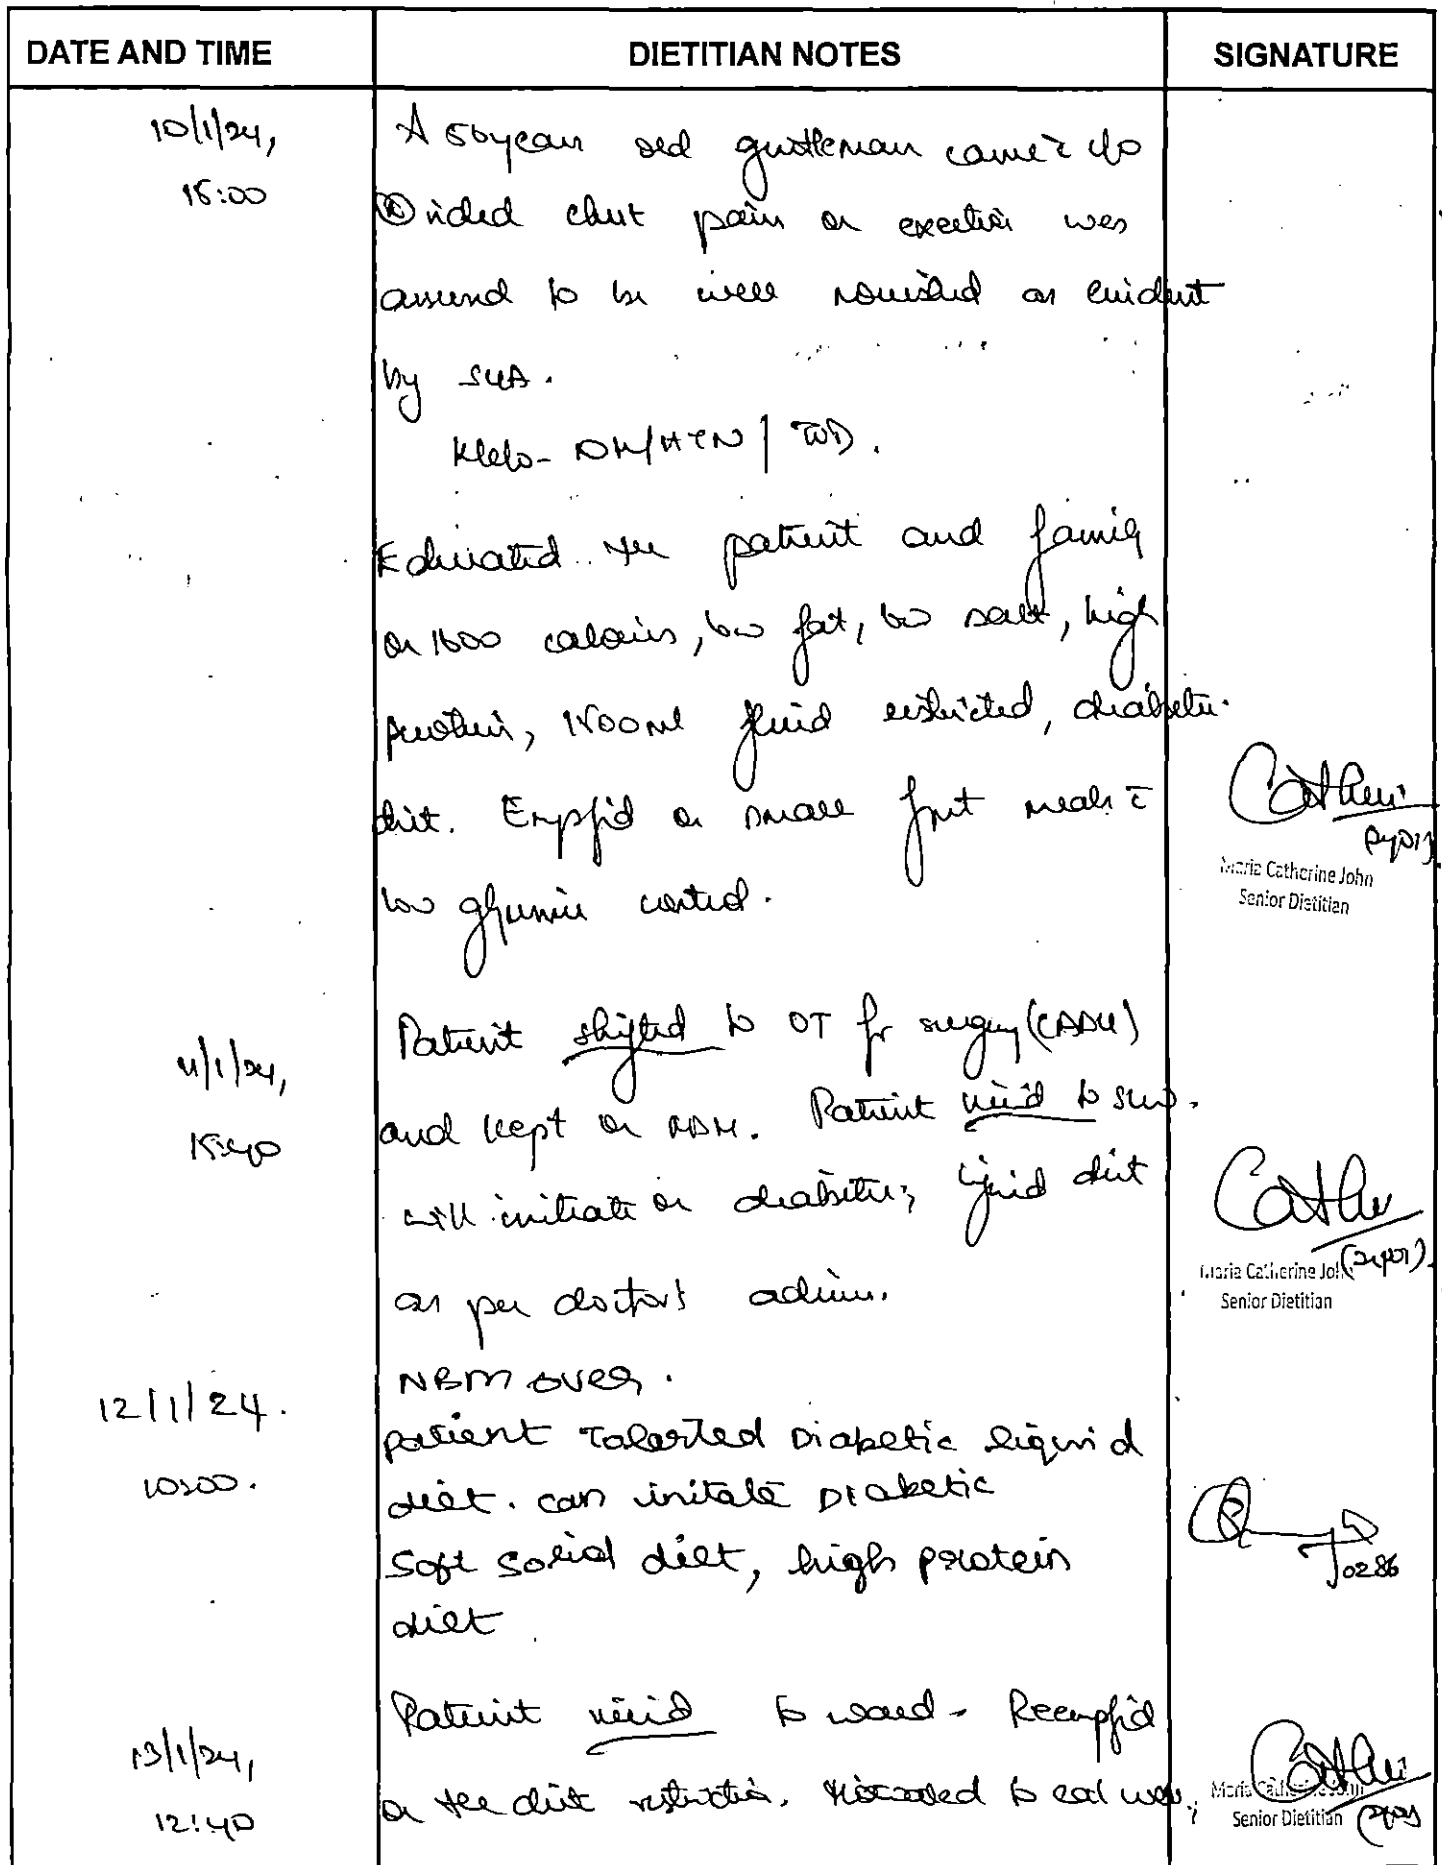 DATE AND TIME DIETITIAN NOTES SIGNATURE
10/1/24, A 56 year old gentleman came c̄ c/o
15:00 sided chest pain on exertion was
assessed to be well nourished as evident
by SGA.
K/c/o - DM/HTN/
Educated the patient and family
on 1600 calories, low fat, low salt, high
protein, 1500ml fluid restricted, diabetic
diet. on small meals c̄
low glycemic
Maria Catherine John
Senior Dietitian
11/1/24, Patient shifted to OT for surgery (CABG)
15:40 and kept on NBM. Patient to
will initiate on diabetic, liquid diet
as per doctor's advice.
Maria Catherine John
Senior Dietitian
12/1/24. NBM over.
10:00. patient Tolarted Diabetic liquid
diet. can initate Diabetic
Soft Solid diet, high protein
diet
0286
13/1/24, Patient to ward.
12:40 on the diet restriction. to eat well,
Maria Catherine John
Senior Dietitian